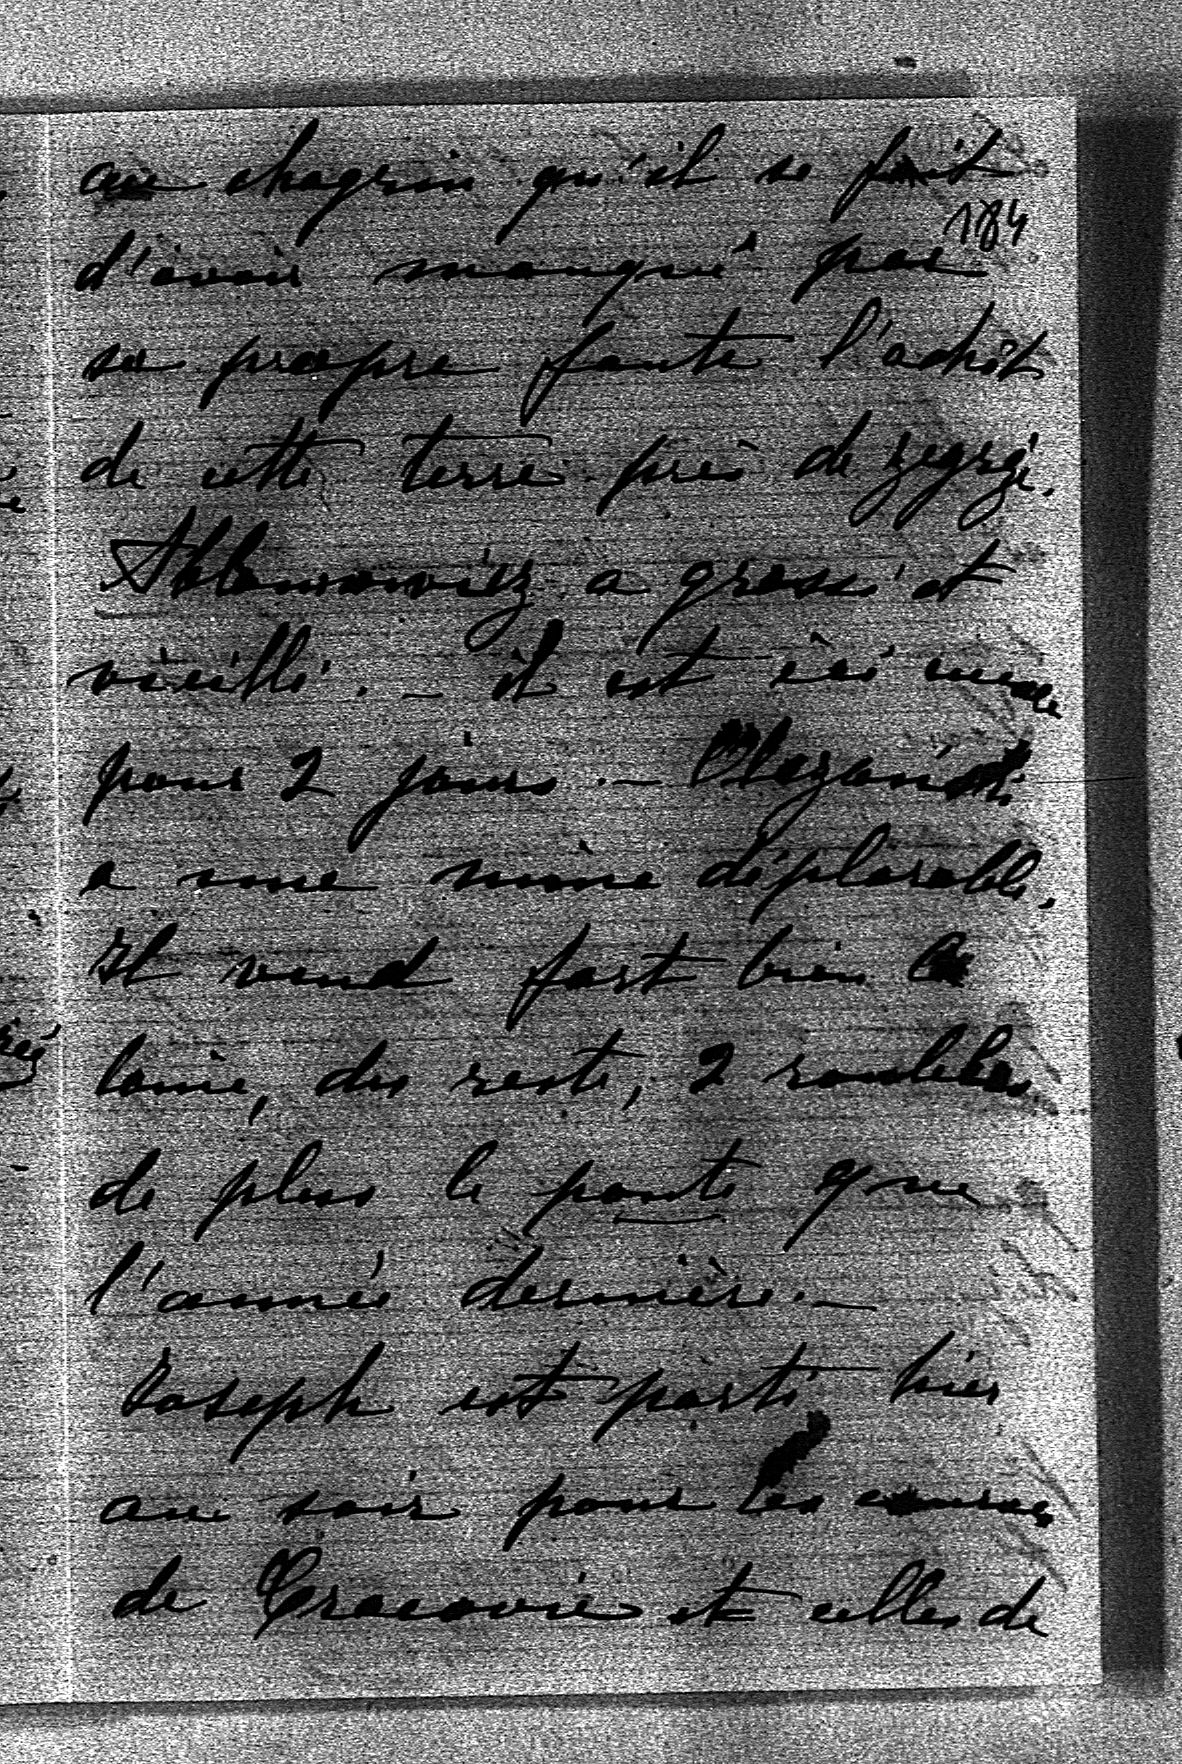 au chagrin qu'il se fait
184
d'avoir manqué par
sa propre faute l'achat
de cette terre près de Zegrze.
a grossi et
vieilli. - il est ici
pour 2 jours. -
a une mine déplorable.
Il vend fort bien la
laine, du reste, 2 roubles
de plus le poute que
l'année dernière. -
Joseph est parti hier
au soir pour les courses
de Cracovie et celles de